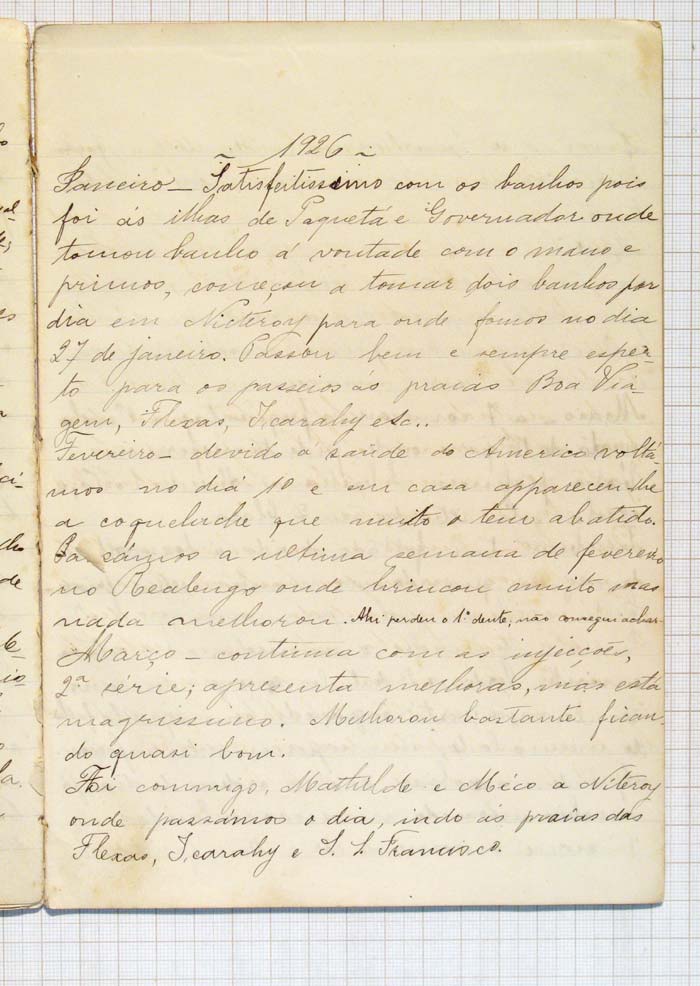 1926
Janeiro – Satisfeitissimo com os banhos pois
foi ás ilhas de Paquetá e Governador onde
tomou banho á vontade com o mano e
primos, começou a tomar dois banhos por
dia em Nictheroy para onde fomos no dia
27 de janeiro. Passou bem e sempre esper-
to para os passeios ás praias Boa Via-
gem, Flexas, Icarahy etc..
Fevereiro – devido á saúde do Americo voltá-
mos no dia 10 e em casa appareceu-lhe
a coqueluche que muito o tem abatido.
Passámos a ultima semana de fevereiro
no Realengo onde brincou muito mas
nada melhorou. Ahi perdeu o 1º dente; não consegui achar-
Março – continua com as injecções,
2ª série; apresenta melhoras, mas está
magrissimo. Melhorou bastante fican-
do quasi bom.
Foi commigo, Mathilde e Méco a Niteroy
onde passámos o dia, indo ás praias das
Flexas, Icarahy e S. Francisco.